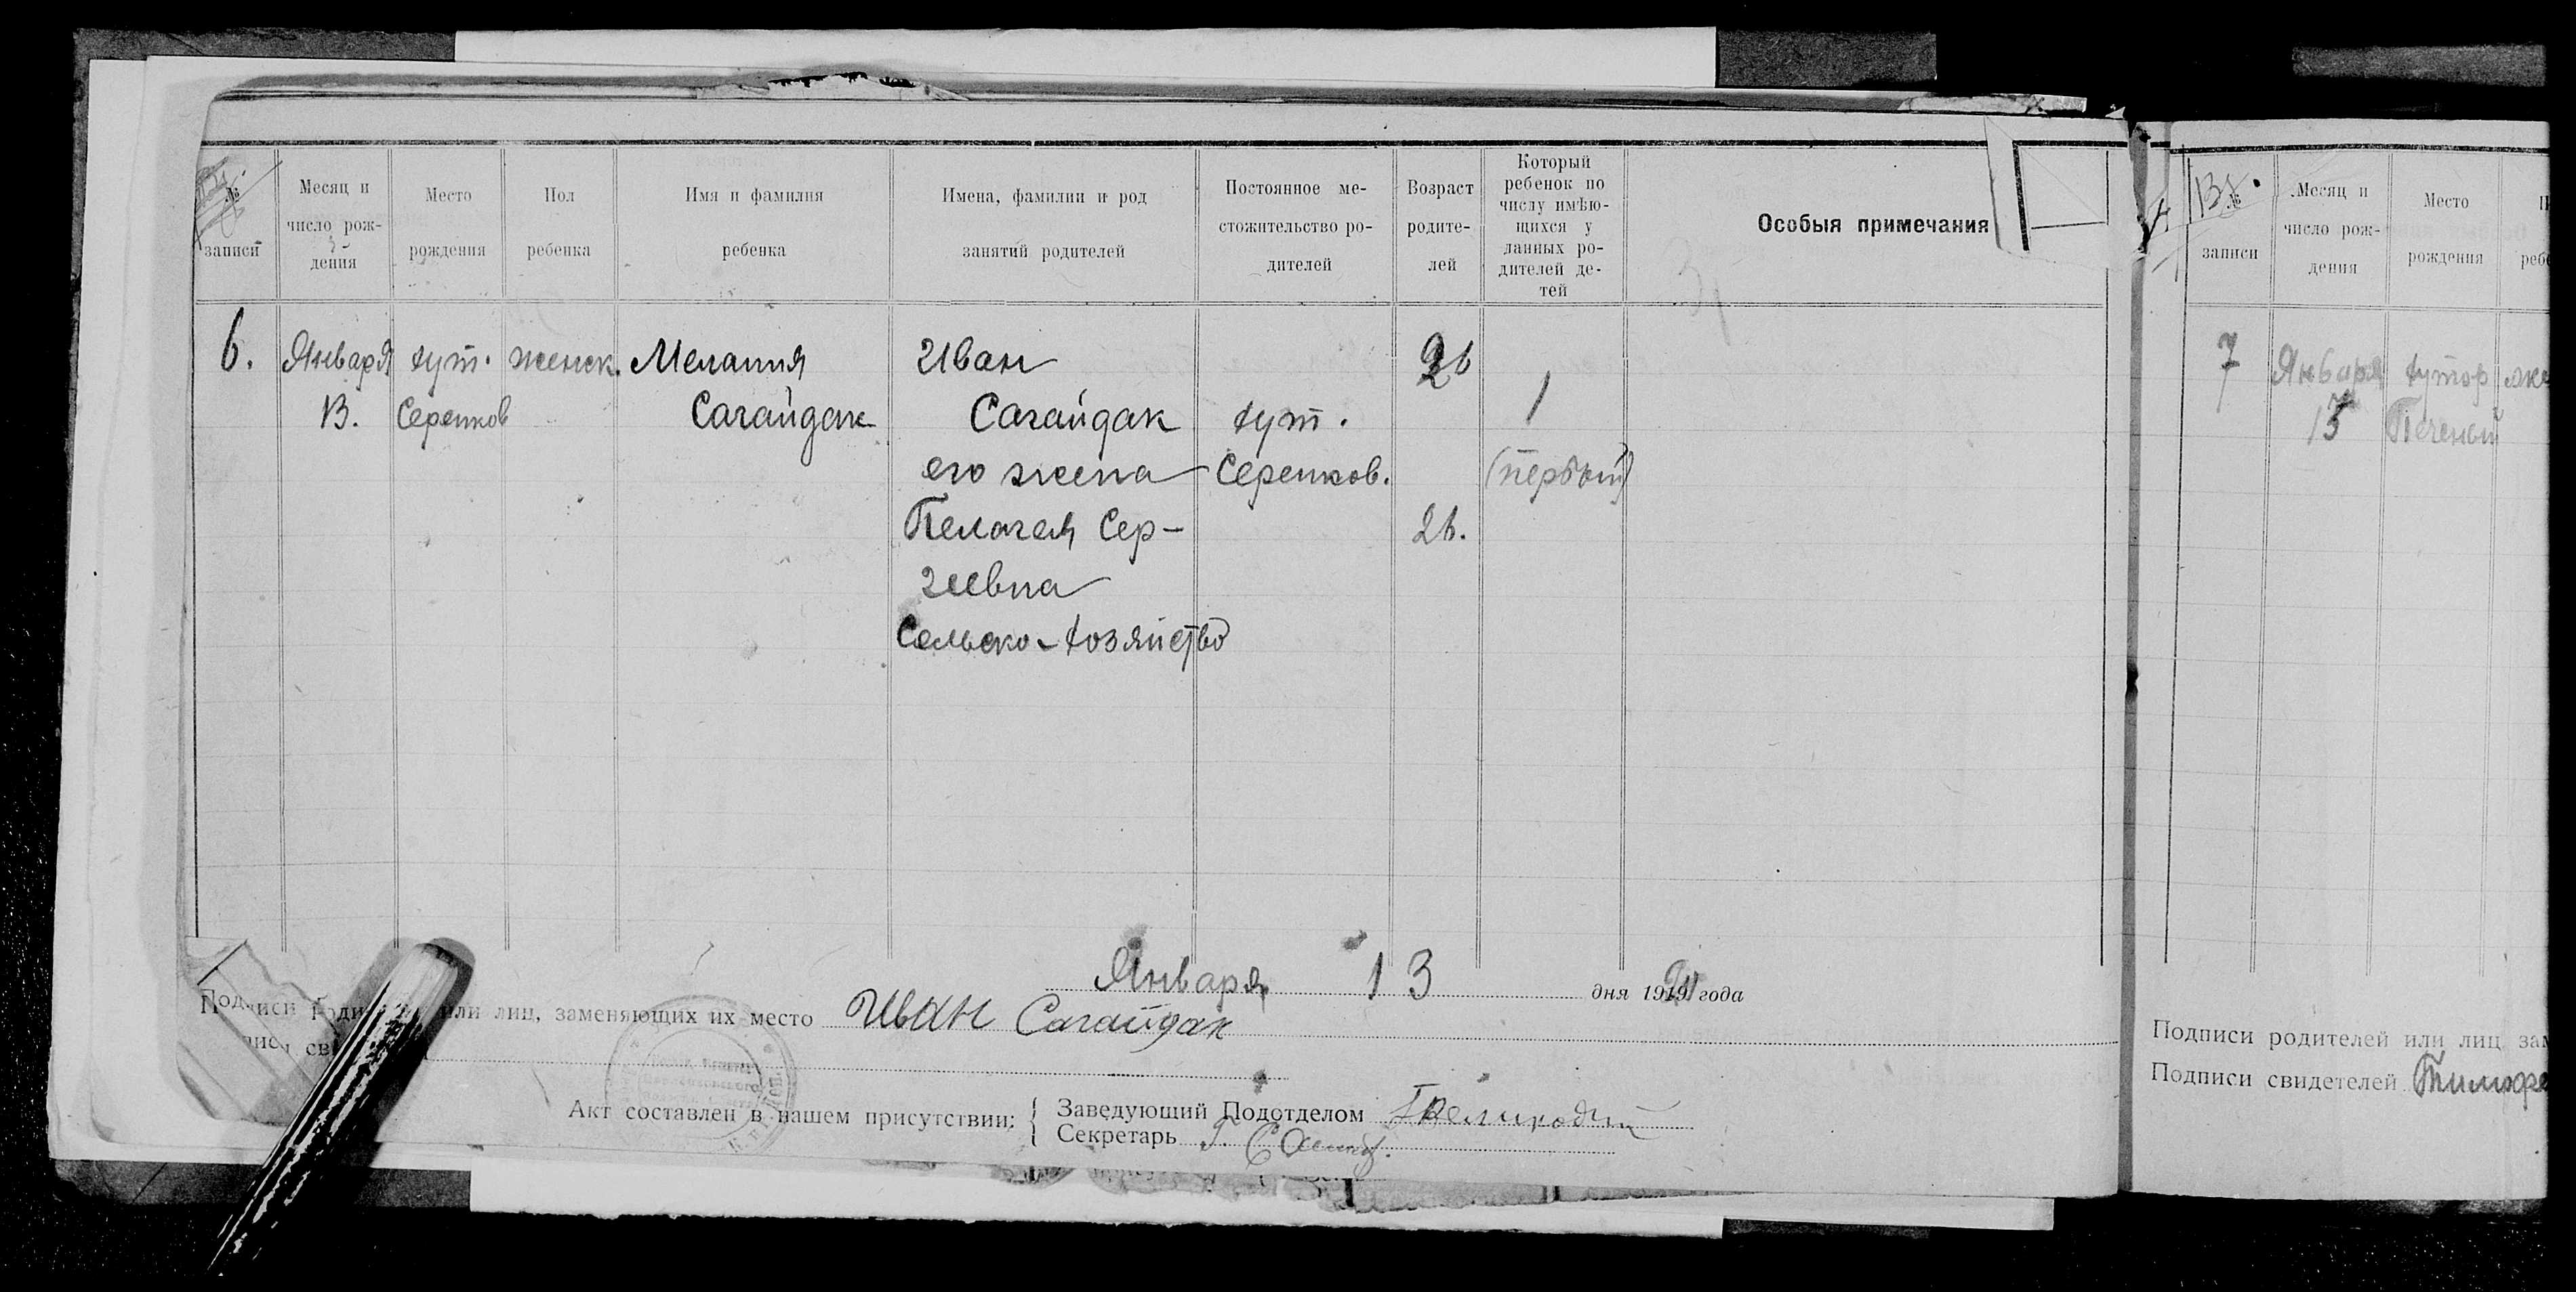 № записи
Месяц и число рождения
Место рождения
Пол ребенка
Имя и фамилия ребенка
Имена, фамилии и род занятий родителей
Постоянное местожительство родителей
Возраст родителей
Который ребенок по числу имѣющихся у данных родителей детей
Особыя примечания
6. Января хут. женск. Мелания Иван 26
13. Серепков Сагайдак Сагайдак хут. 1
его жена Серепков. (первый)
Пелагея Сер- 26.
геевна
Сельско-хозяйство
Января 13 дня 19 года
Подписи или лиц, заменяющих их место Иван Сагайдак
Акт составлен в нашем присутствии:
Заведующий Подотделом Великодный
Секретарь
№ записи
Месяц и число рождения
Место рождения
7 Января хутор
15 Печеный
Подписи родителей или лиц зам
Подписи свидетелей Тимофе